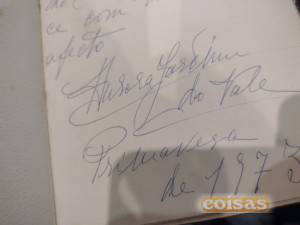 ce com
afecto
Aurora Jardim
do Vale
Primavera
de 1973
coisas